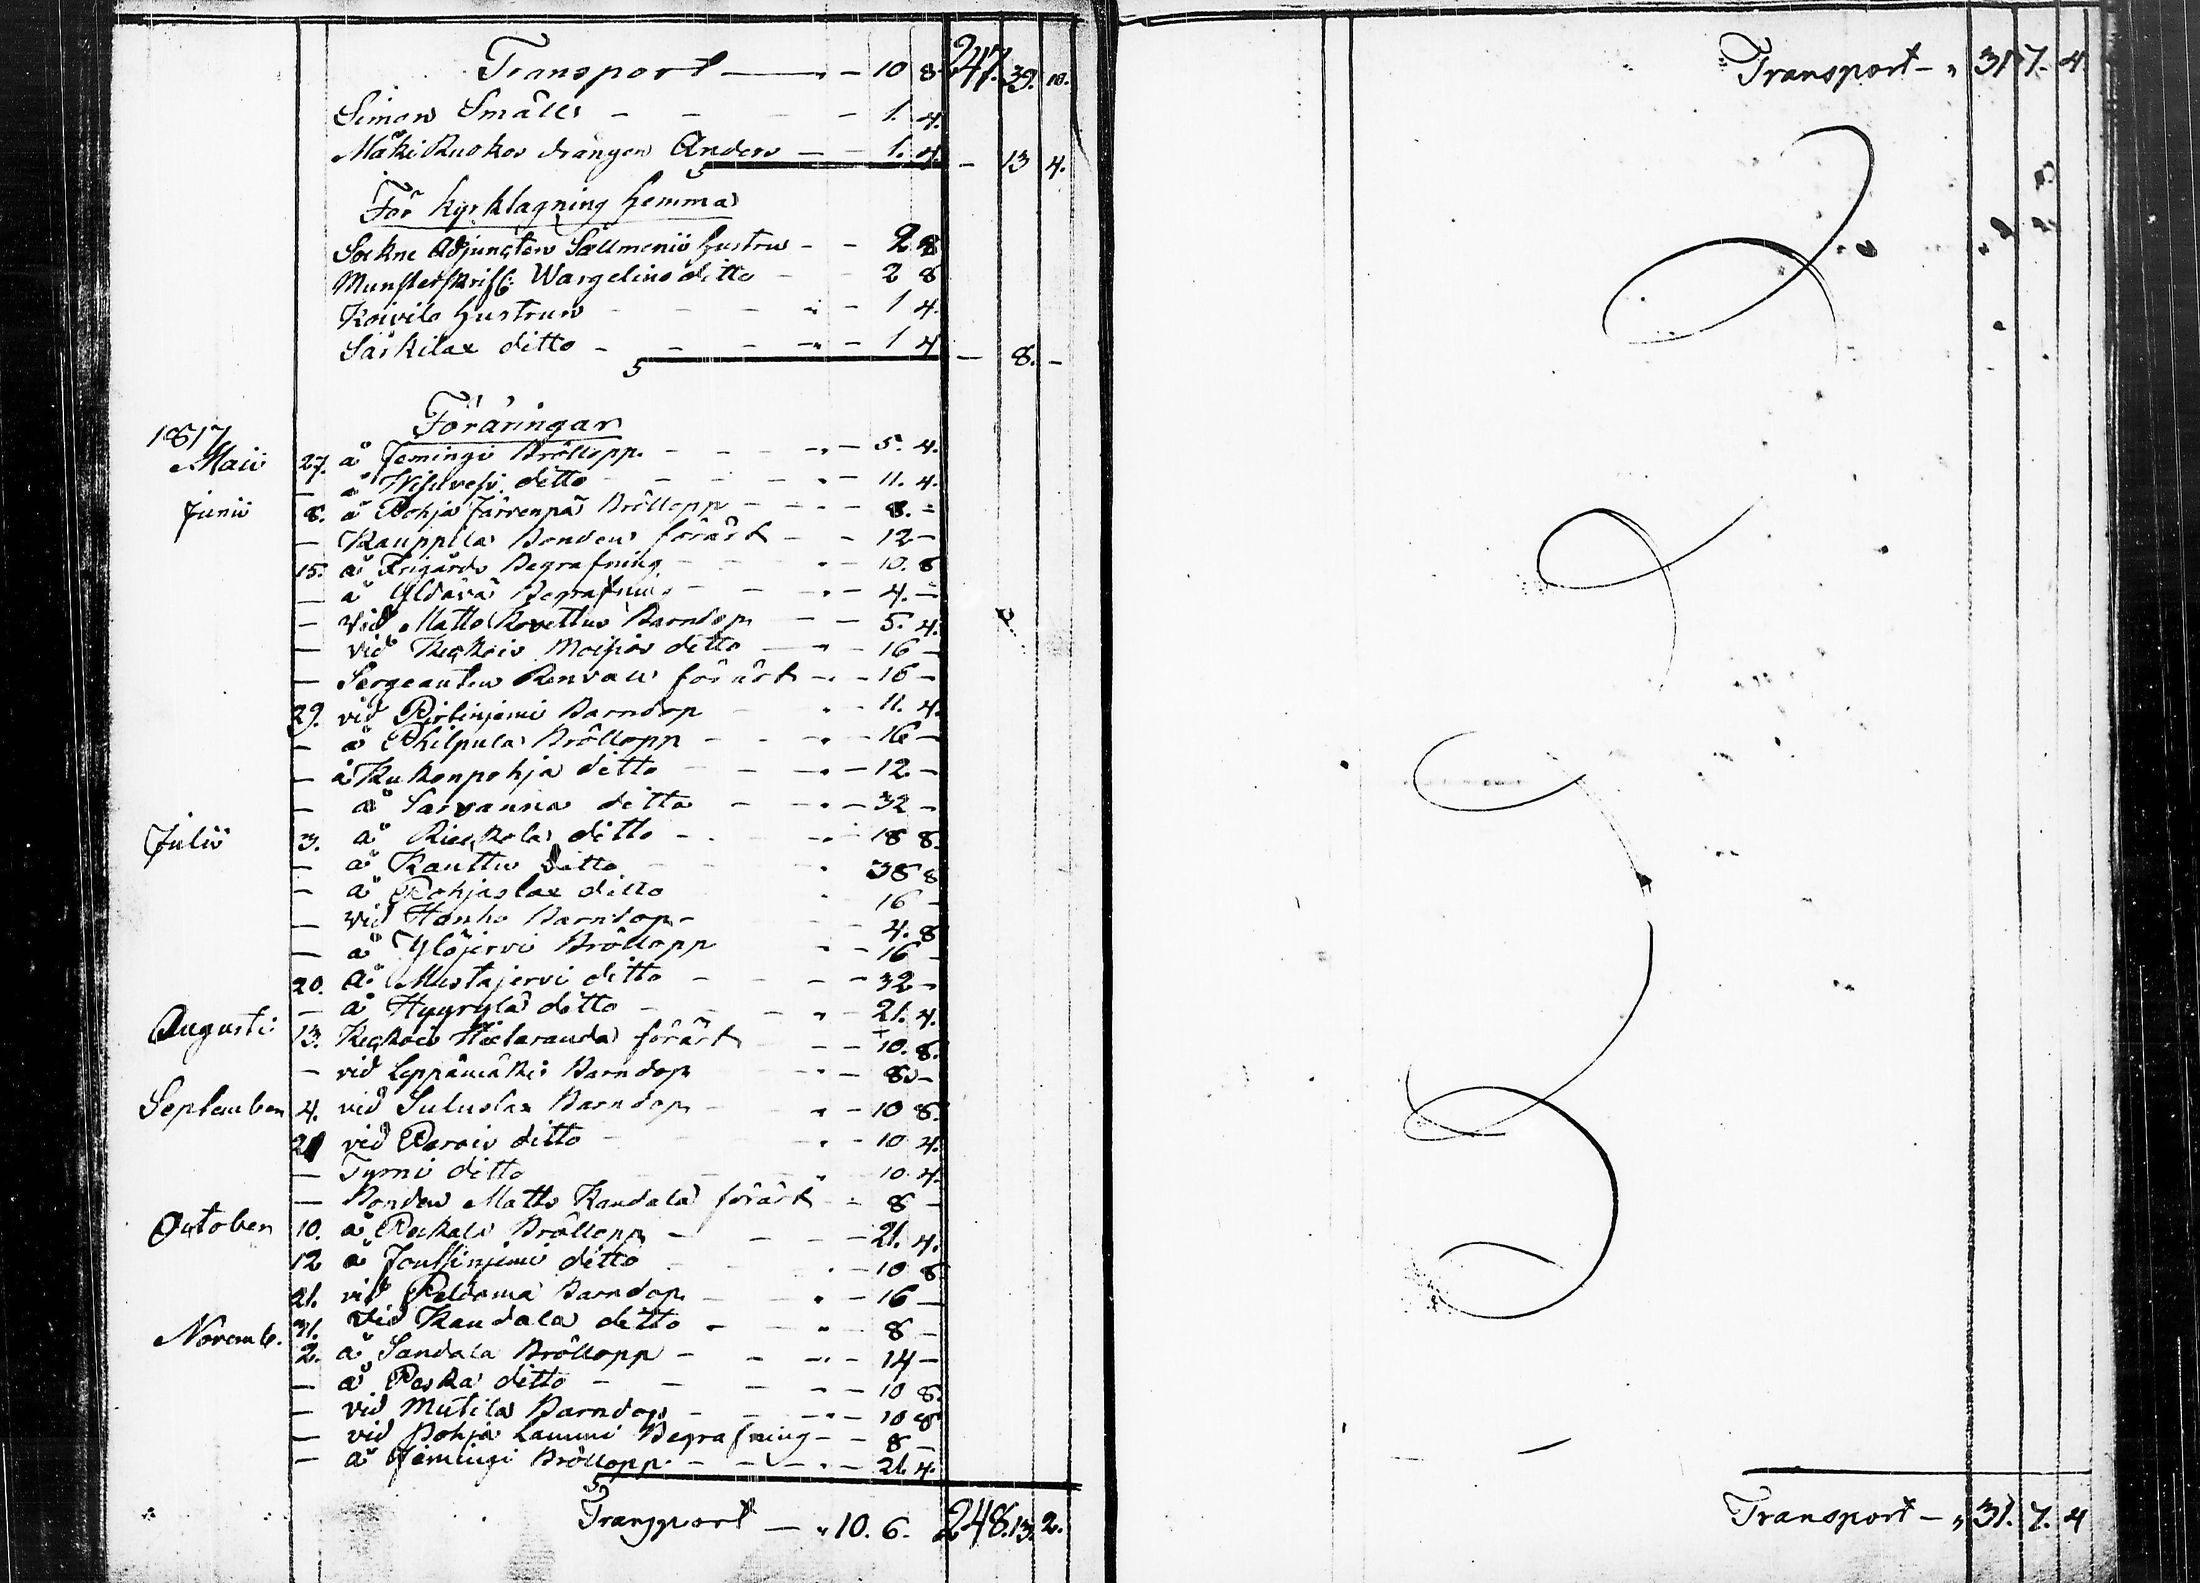 Transport — „ — 10 8 247. 39. 10.
Simon Småll — 1. 4.
Mäki Ruokos drängen Anders — 1. 4. — 13 4.
För kyrktagning hemma
Sockne Adjuncten Sallmenii hustru — 2 8
Munsterskrif: Wargelins ditto — 2 8
Koivila hustrun — „ — 1 4.
Särkilax ditto — „ — 1 4 — 8. —
Föräringar
1817
Maii 27. å Jemingi Bröllopp. — „ — 5. 4.
— å ditto — „ — 11. 4.
Junii 8. å Pohja Järvenpä Bröllopp — 8. —
— Kauppila Bonden förärt — 12 —
15. å Prigårds Begrafning — „ — 10. 8
— å Yldävä Begrafning — „ — 4. —
— vid Matts Kovettus Barndop — 5. 4.
— vid Keskois Moisios ditto — „ — 16 —
— Sergeanten Renvall förärt — „ — 16 —
29. vid Pirtinjemi Barndop — „ — 11. 4.
— å Philpula Bröllopp — „ — 16 —
— å Kukonpohja ditto — „ — 12 —
— å Sarvanna ditto — „ — 32 —
Julii 3. å Rieskola ditto — „ — 18 8.
— å Kauttu ditto „ 38 8
— å Pohjaslax ditto „ 16 —
— vid Hanho Barndop — 4. 8
— å Ylöjervi Bröllopp „ — 16 —
20. å Mustajervi ditto — 32 —
— å Hyyrylä ditto — „ — 21. 4.
Augusti 13. Keskois förärt — 10. 8.
— vid Leppämäki Barndop — „ — 8. —
September 4. vid Suluslax Barndop — „ — 10 8.
21 vid Perois ditto — „ — 10 4.
— Tyrni ditto — „ 10 4.
— Bonden Matts Kandala förärt — 8 —
October 10. å Peckala Bröllopp — 21. 4.
12 å Joussinjemi ditto — „ — 10 8
21. vid Peldoma Barndop — „ — 16 —
31. vid Kandala ditto — „ — 8 —
Novemb. 2. å Sandala Bröllopp — „ — 14 —
— å Paska ditto — „ — 10 8.
— vid Mutila Barndop — „ — 10 8
— vid Pohja Lammi Begrafning — 8 —
— å Jemingi Bröllopp. — „ — 21. 4.
Transport — „ 10. 6. 248. 13. 2.
Transport — „ 31 7. 4
Transport — „ 31. 7. 4